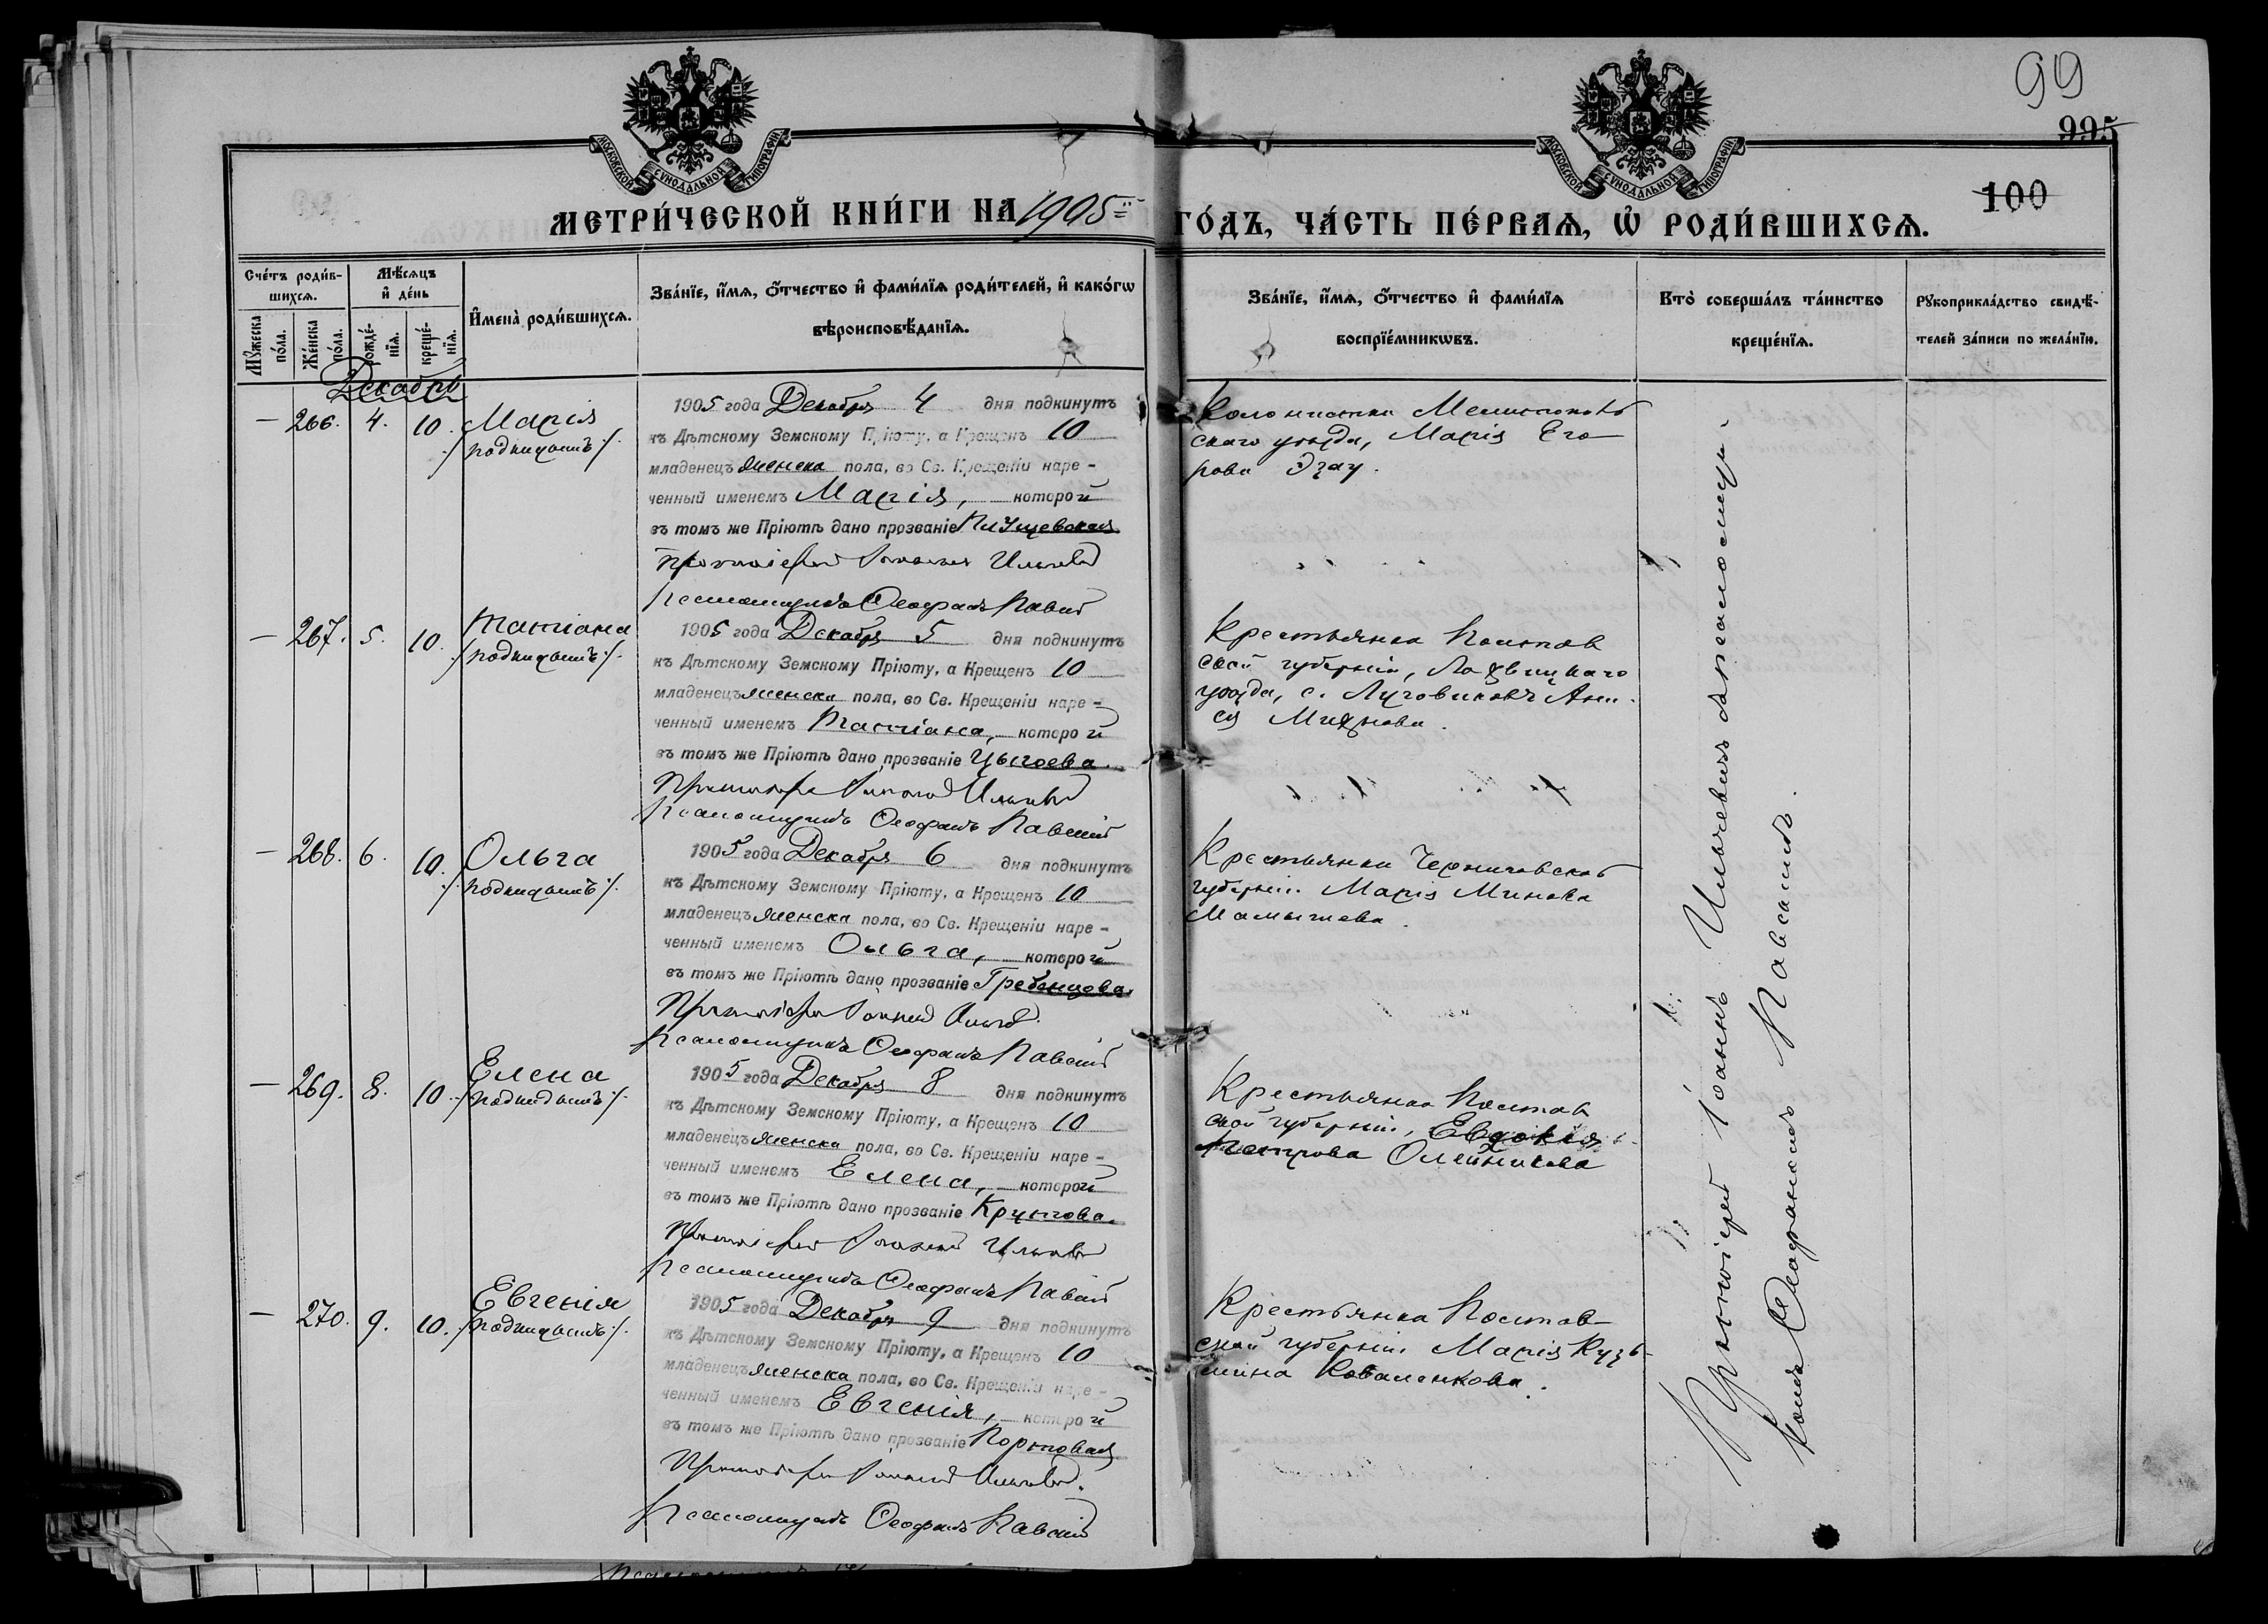 99
995
100
МОСКОВСКОЙ СУНОДАЛЬНОЙ ТИПОГРАФІИ
МОСКОВСКОЙ СУНОДАЛЬНОЙ ТИПОГРАФІИ
МЕТРИ́ЧЕСКОЙ КНИ́ГИ НА 1905 ГО́ДЪ, ЧА́СТЬ ПЕ́РВАѦ, Ѡ҆ РОДИ́ВШИХСѦ.
Сче́тъ роди́в-
шихсѧ.
Мѣ́сѧцъ
и҆ де́нь
Мꙋ́жеска
по́ла.
Же́нска
по́ла.
рожде́-
нїѧ.
креще́-
нїѧ.
И҆мена̀ роди́вшихсѧ.
Зва́нїе, и҆́мѧ, ѻ҆́тчество и҆ фами́лїѧ роди́телей, и҆ како́гѡ
вѣроисповѣ́данїѧ.
Зва́нїе, и҆́мѧ, ѻ҆́тчество и҆ фами́лїѧ
воспрїе́мникѡвъ.
Кто̀ соверша́лъ та́инство
креще́нїѧ.
Рꙋкоприкла́дство свидѣ́-
телей за́писи по жела́нїю.
Декабрь
— 266. 4. 10. Марія
/подкидышъ/.
1905 года Декабря 4 дня подкинутъ
къ Дѣтскому Земскому Пріюту, а Крещенъ 10
младенецъ женска пола, во Св. Крещеніи наре-
ченный именемъ Марія, которой
въ томъ же Пріютѣ дано прозваніе
Протоіерей Іоаннъ
Псаломщикъ Ѳеофанъ Павскій
Колонистка
скаго уѣзда, Марія Его
рова
— 267. 5. 10. Татіана
/подкидышъ/.
1905 года Декабря 5 дня подкинутъ
къ Дѣтскому Земскому Пріюту, а Крещенъ 10
младенецъ женска пола, во Св. Крещеніи наре-
ченный именемъ Татіана, которой
въ томъ же Пріютѣ дано прозваніе Цыгоева.
Протоіерей Іоаннъ
Псаломщикъ Ѳеофанъ Павскій
Крестьянка Полтав
ской губерніи, Лохвицкаго
уѣзда, с. Луговиковъ Ани-
сія
— 268. 6. 10. Ольга
/подкидышъ/.
1905 года Декабря 6 дня подкинутъ
къ Дѣтскому Земскому Пріюту, а Крещенъ 10
младенецъ женска пола, во Св. Крещеніи наре-
ченный именемъ Ольга, которой
въ томъ же Пріютѣ дано прозваніе Гребенцова.
Протоіерей Іоаннъ
Псаломщикъ Ѳеофанъ Павскій
Крестьянка Черниговской
губерніи Марія Минова
— 269. 8. 10. Елена
/подкидышъ/.
1905 года Декабря 8 дня подкинутъ
къ Дѣтскому Земскому Пріюту, а Крещенъ 10
младенецъ женска пола, во Св. Крещеніи наре-
ченный именемъ Елена, которой
въ томъ же Пріютѣ дано прозваніе Крунтова.
Протоіерей Іоаннъ
Псаломщикъ Ѳеофанъ Павскій
Крестьянка Полтав
ской губерніи, Евдокія
Петрова Олейникова
— 270. 9. 10. Евгенія
/подкидышъ/.
1905 года Декабря 9 дня подкинутъ
къ Дѣтскому Земскому Пріюту, а Крещенъ 10
младенецъ женска пола, во Св. Крещеніи наре-
ченный именемъ Евгенія, которой
въ томъ же Пріютѣ дано прозваніе Портовая
Протоіерей Іоаннъ
Псаломщикъ Ѳеофанъ Павскій
Крестьянка Полтав-
ской губерніи Марія Кузь-
мина Коваленкова.
Протоіерей Іоаннъ Ильчевичъ съ псаломщи-
комъ Ѳеофаномъ Павскимъ.